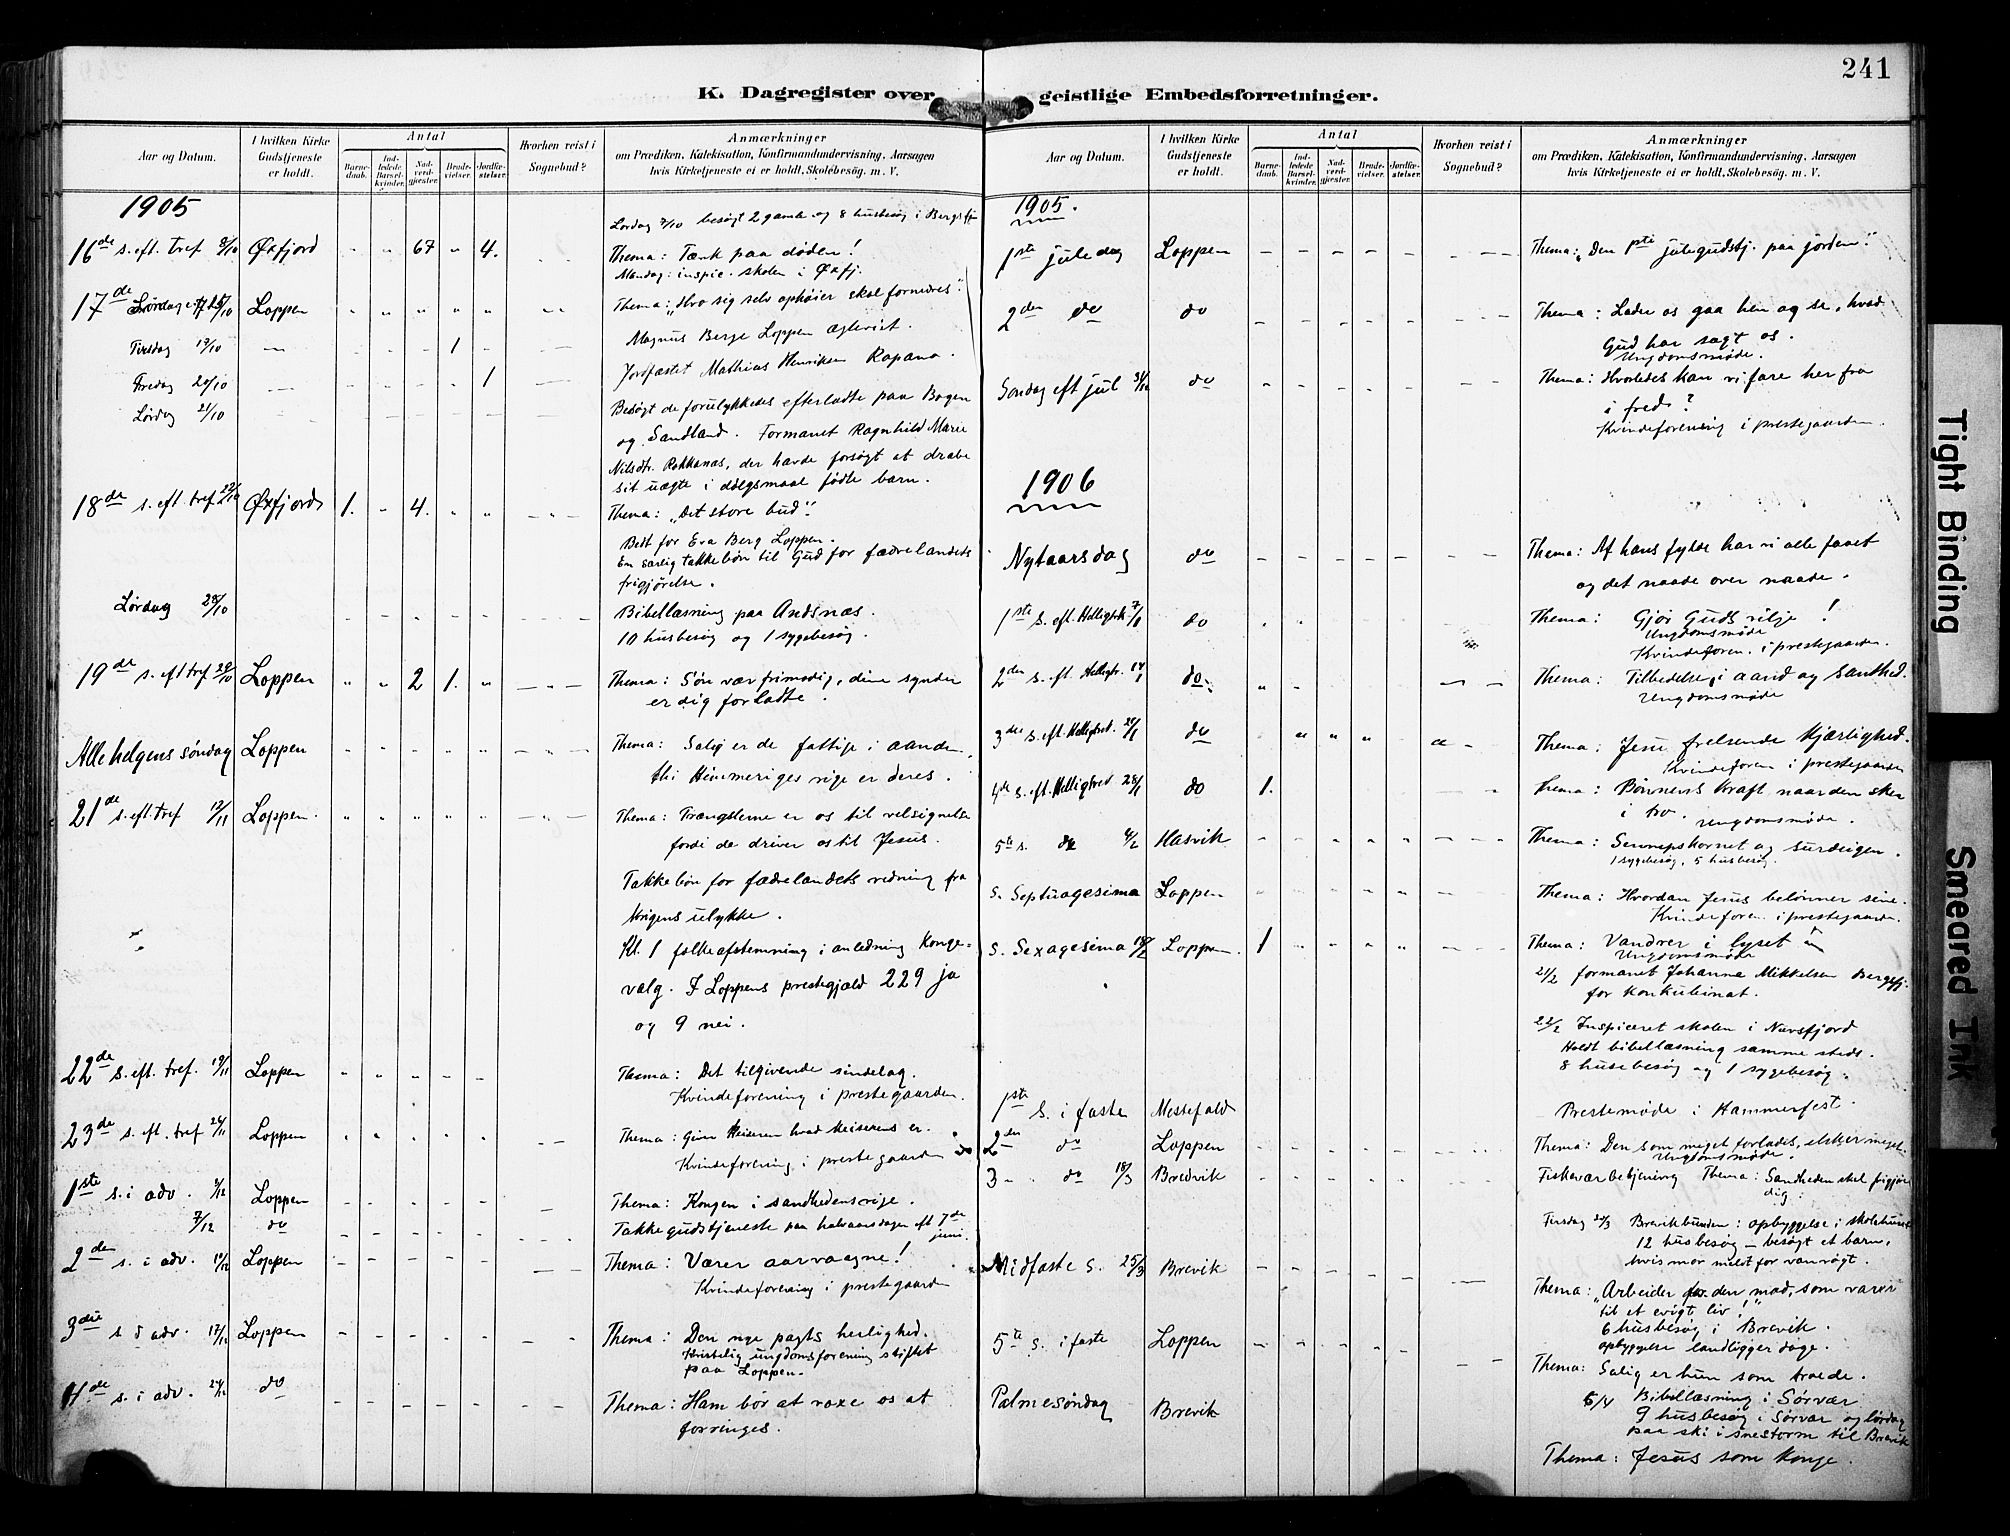 241
K. Dagregister over geistlige Embedsforretninger.
Aar og Datum.
I hvilken Kirke Gudstjeneste er holdt.
Antal
Barnedaab.
Indledede Barselkvinder.
Nadverdgjester.
Brudevielser.
Jordfæstelser.
Hvorhen reist i Sognebud?
Anmærkninger
om Prædiken, Katekisation, Konfirmandundervisning, Aarsagen
hvis Kirketjeneste ei er holdt, Skolebesøg. m. V.
1905
Lørdag 7/10 besøgt 2 gamle og 8 husbesøg i Bergsfj.
16de s. eft. tref 8/10 Øxfjord 67 4. Thema: Tænk paa døden!
Mandag: inspic. skolen i Øxfj.
17de Loppen Thema: „Hvo sig selv ophøier skal fornedres".
Tirsdag 17/10 1 Magnus Berge Loppen ægteviet.
Fredag 20/10 1 Jordfæstet Mathias Henriksen
Lørdag 21/10 Besøgt de forulykkedes efterladte paa Bogen
og Sandland. Formanet Ragnhild Marie
Nilsdtr. der havde forsøgt at dræbe
sit uægte i dølgsmaal fødte barn.
18de s. eft. tref 22/10 Øxfjord 1. 4. Thema: „Det store bud".
Bedt for Eva Berg Loppen.
En særlig takkebøn til Gud for fædrelandets
frigjørelse.
Lørdag 28/10 Bibellæsning paa Andsnæs.
10 husbesøg og 1 sygebesøg.
19de s. eft tref 29/10 Loppen 2 1. Thema: Søn vær frimodig, dine synder
er dig forladte.
Alle helgens søndag Loppen Thema: Salig er de fattige i aanden
thi Himmeriges rige er deres.
21de s. eft. tref 12/11 Loppen. Thema: Trængslerne er os til velsignelse
fordi de driver os til Jesus.
Takkebøn for fædrelandets redning fra
krigens ulykke.
Kl. 1 folkeafstemning i anledning Konge-
valg. I Loppens prestegjæld 229 ja
og 9 nei.
22de s. eft. tref. 19/11 Loppen Thema: Det tilgivende sindelag.
Kvindeforening i prestegaarden.
23de s. eft. tref 26/11 Loppen Thema: Giver Keiseren hvad Keiserens er.
Kvindeforening i prestegaarden
1ste s. i adv. 3/12 Loppen Thema: Kongen i sandhedens rige.
7/12 do Takkegudstjeneste paa halvaarsdagen eft 7de juni.
2den s. i adv. 10/12 Loppen Thema: Værer aarvaagne!
Kvindeforening i prestegaarden
3die s i adv. 17/12 Loppen Thema: Den nye pagts herlighed.
Kristelig ungdomsforening stiftet
paa Loppen.
4de s. i adv. 24/12 do Thema: Ham bør at voxe os at
forringes.
Aar og Datum.
I hvilken Kirke Gudstjeneste er holdt.
Antal
Barnedaab.
Indledede Barselkvinder.
Nadverdgjester.
Brudevielser.
Jordfæstelser.
Hvorhen reist i Sognebud?
Anmærkninger
om Prædiken, Katekisation, Konfirmandundervisning, Aarsagen
hvis Kirketjeneste ei er holdt, Skolebesøg. m. V.
1905.
1ste juledag Loppen Thema: „Den 1ste julegudstj. paa jorden".
2den do do Thema: Lader os gaa hen og se, hvad
Gud har sagt os.
Ungdomsmøde.
Søndag eft jul 31/12 do Thema: Hvorledes kan vi fare her fra
i fred?
Kvindeforening i prestegaarden.
1906
Nytaarsdag do Thema: Af hans fylde har vi alle faaet
og det naade over naade.
1ste s. eft. Helligtrk. 7/1 do Thema: Gjør Guds vilje!
Ungdomsmøde
Kvindeforen. i prestegaarden.
2den s. eft. Helligtr. 14/1 do. Thema: Tilbedelse i aand og Sandhed.
Ungdomsmøde
3die s. eft. Helligtred. 21/1 do Thema: Jesu frelsende Kjærlighed.
Kvindeforen i prestegaarden
4de s. eft. Helligtred 28/1 do 1. Thema: Bønnens Kraft naar den sker
i tro. Ungdomsmøde.
5te s. do 4/2 Hasvik Thema: Sennepskornet og surdeigen.
1 sygebesøg, 5 husbesøg.
S. Septuagesima Loppen Thema: Hvordan Jesus belønner sine.
Kvindeforen. i prestegaarden.
S. Sexagesima 18/2 Loppen. 1 Thema: Vandrer i lyset
Ungdomsmøde
21/2 formanet Johanna Mikkelsen Bergsfj.
for konkubinat.
22/2 Inspiceret skolen i Nuvsfjord
Holdt bibellæsning samme steds.
8 husebesøg og 1 sygebesøg.
1ste s. i faste Messefald Prestemøde i Hammerfest.
2den do Loppen Thema: Den som meget forlades, elsker meget.
Ungdomsmøde.
3 do 18/3 Bredvik Fiskeværbetjening Thema: Sandheden skal frigjøre
dig.
Tirsdag Brevikbunden: opbyggelse i skolehuset
12 husbesøg – besøgt et barn,
hvis mor meldt for vanrøgt.
Midfaste S. 25/3 Brevik Thema: „Arbeider for den mad, som varer
til et evigt liv!"
6 husbesøg i Brevik.
opbyggelse landliggerdage.
5te s. i faste Loppen Thema: Salig er hun som troede.
5/4 Bibellæsning i Sørvær
9 husbesøg i Sørvær og lørdag
paa ski i snestorm til Brevik
Palmesøndag Brevik Thema: Jesus som Konge.
Tight Binding
Smeared Ink